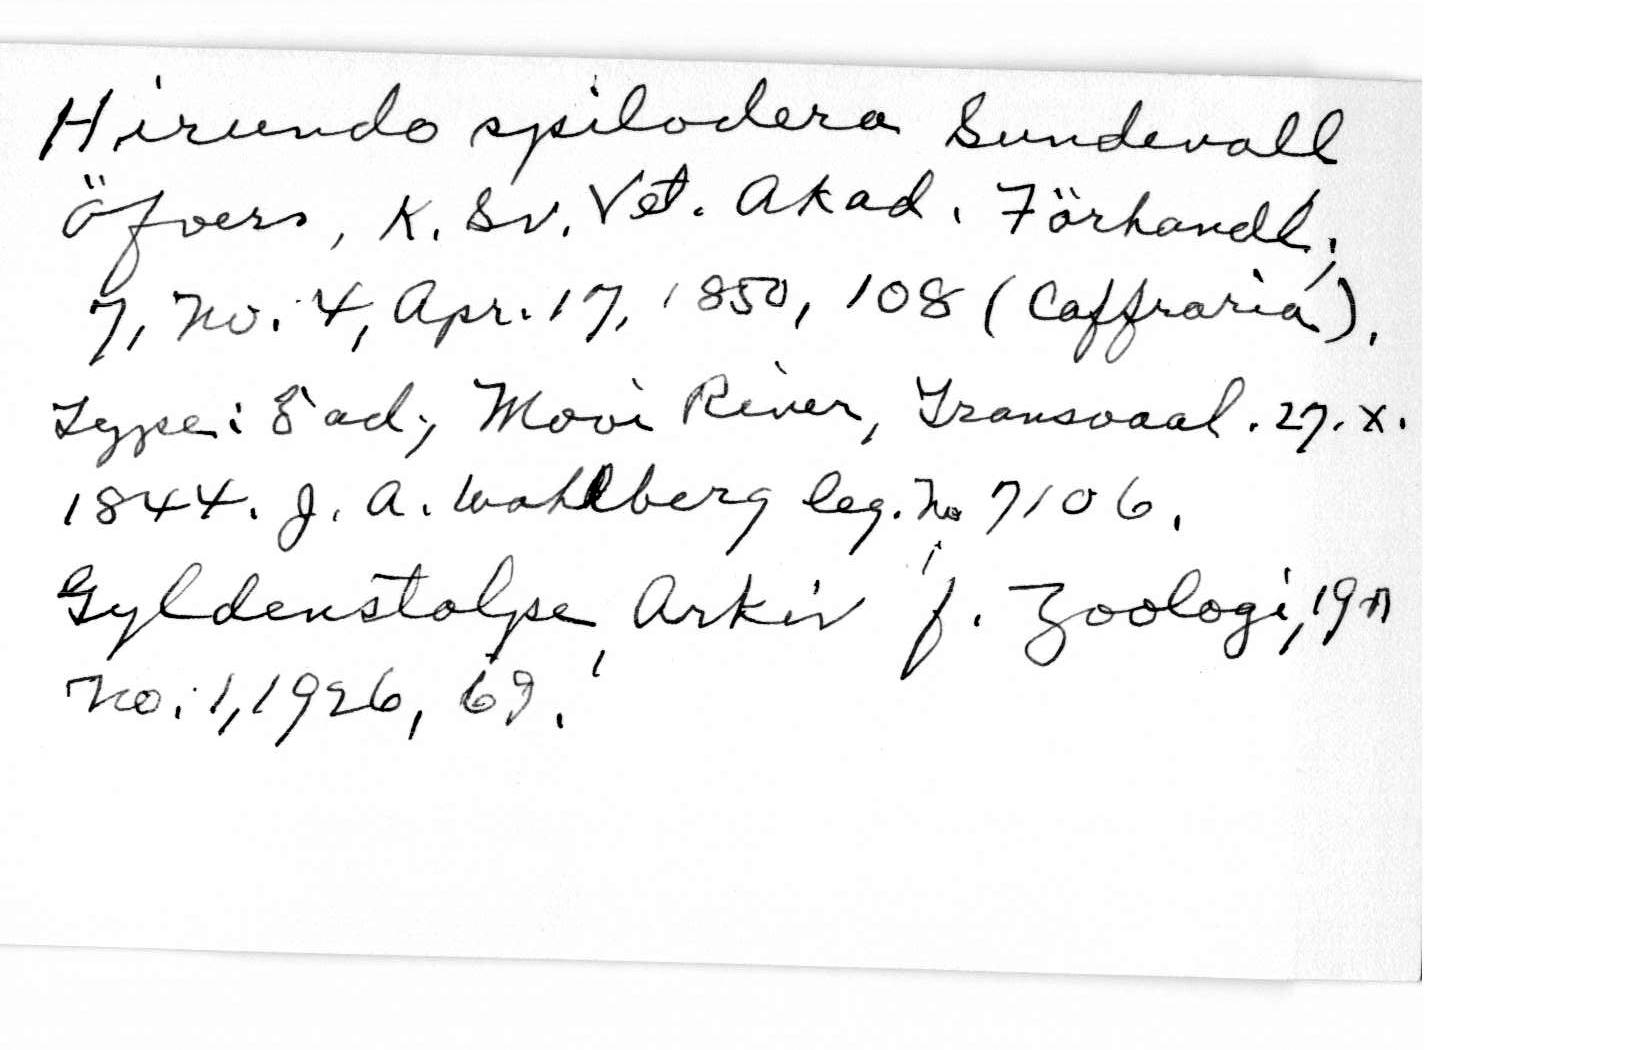 Hirundo spilodera Sundevall
Öfvers, K. Sv. Vet. Akad. Förhandl.,
7, no. 4, Apr. 17, 1850, 108 (Caffraria).
Type: ad; Mooi River, Transvaal. 27. X.
1844. J. A. Wahlberg leg. No 7106.
Gyldenstolpe, Arkiv f. Zoologi, 19A
no. 1, 1926, 69.